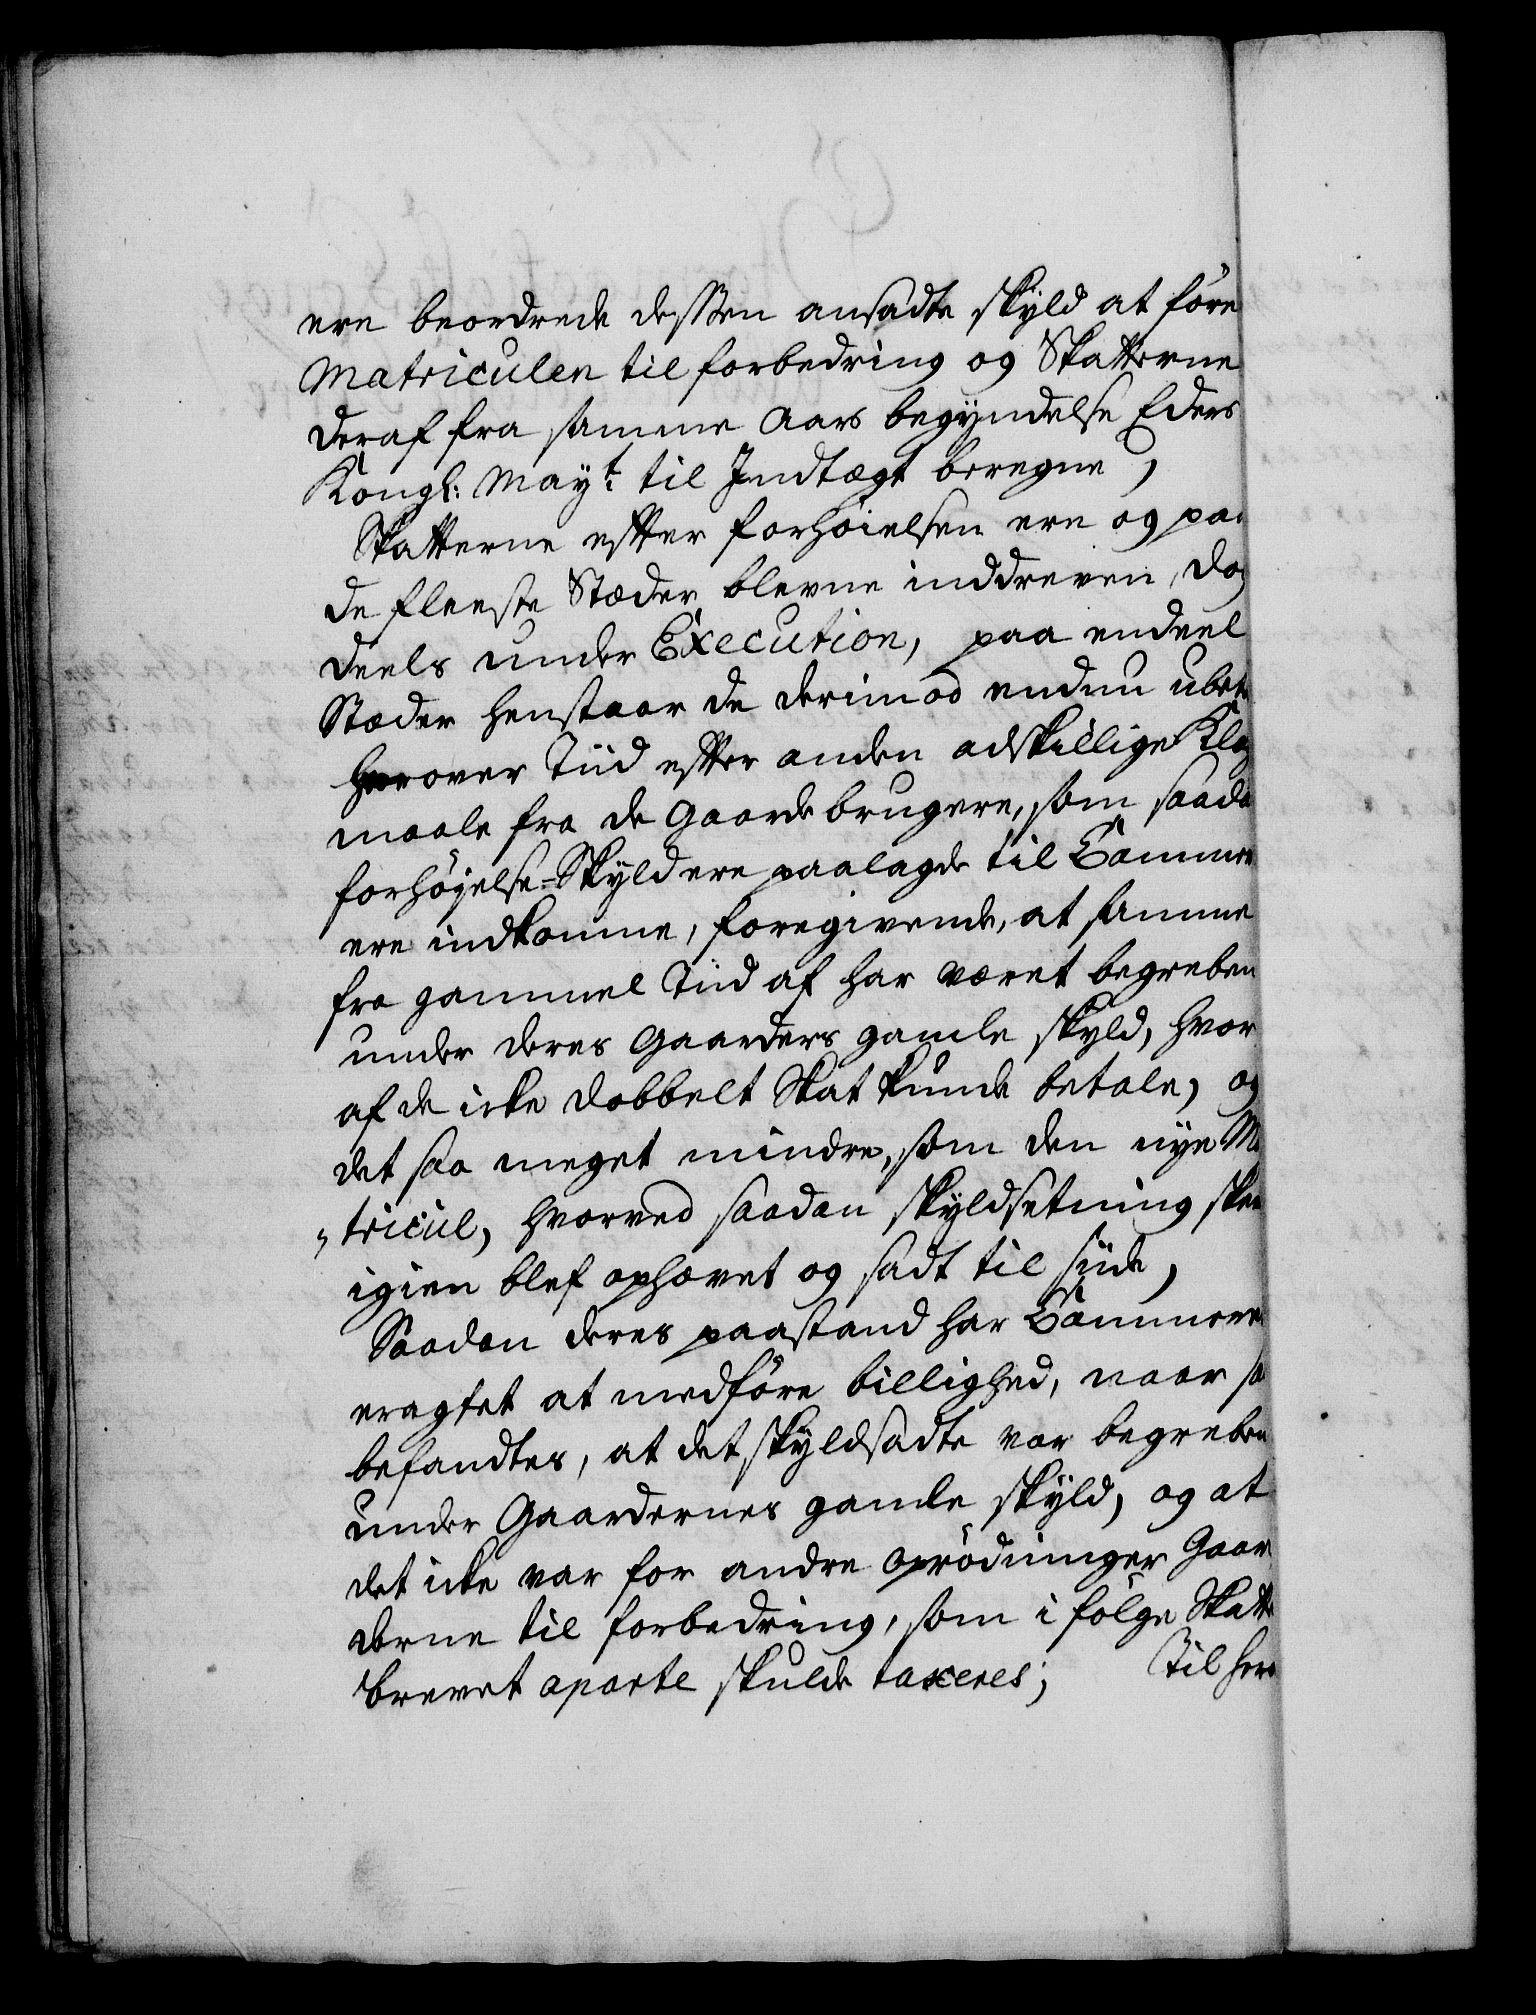 ere beordrede dessen ansadte skyld at före
Matriculen til forbedring og Skatterne
deraf fra samme Aars begyndelse Eders
Kongl: Mayt. til Indtægt beregne,
Skatterne efter forhöielsen ere og paa
de fleeste Stæder blevne inddreven, dog
deels under Execution, paa endeel
Stæder henstaar de derimod endnu ubet
Herover Tiid efter anden adskillige Klag
maale fra de Gaarde brugere, som saada
forhöyelse-Skyld ere paalagde til Cammere
ere indkomne, foregivende, at samme
fra gammel Tiid af har været begreben
under deres Gaarders gamle skyld, hvor
af de icke dobbelt Skat kunde betale, og
det saa meget mindre, som den nye Ma
„tricul, hvorved saadan skyldsetning skee
igien blef ophævet og sadt til siide,
Saadan deres paastand har Cammere
eragtet at medföre billighed, naar sa
befandtes, at det skyldsadte var begreben
under Gaardernes gamle skyld, og at
det icke var for andre oprödninger Gaar
derne til forbedring, som i fölge Skatte
brevet aparte skulde taxeres; Til her